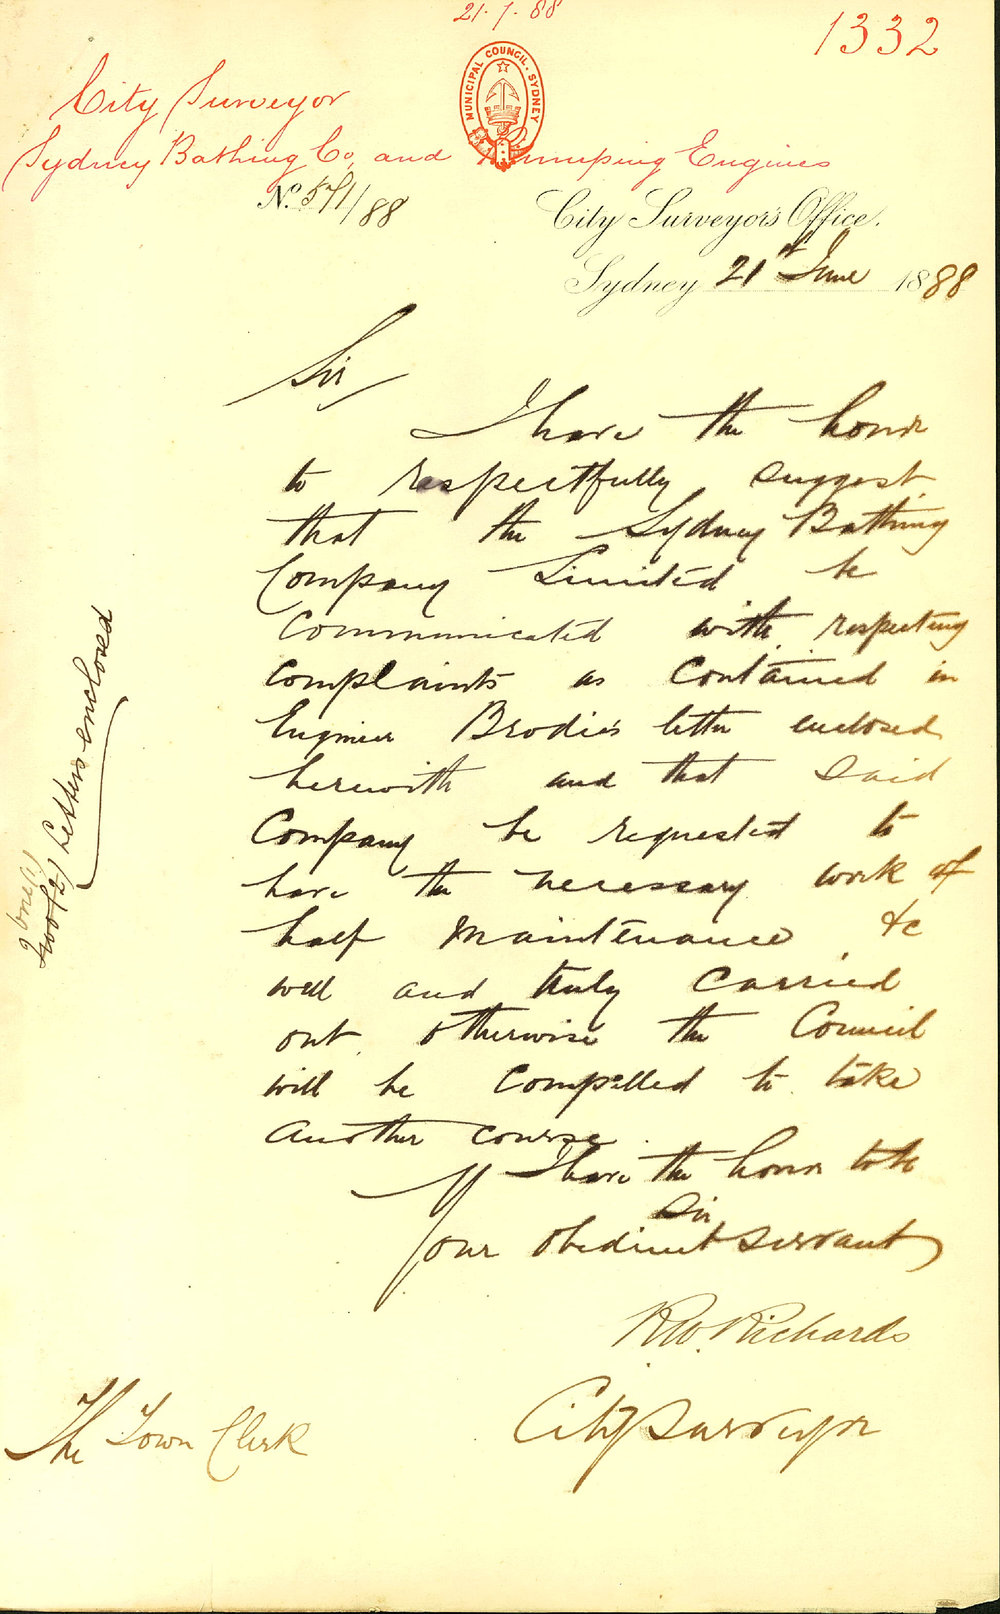 21.7.88
1332
MUNICIPAL COUNCIL. SYDNEY
City Surveyor
Sydney Bathing Co, and Pumping Engines
No. 571/88
City Surveyor's Office.
Sydney 21st June 1888
Sir
I have the honor
to respectfully suggest
that the Sydney Bathing
Company Limited be
communicated with respecting
complaints as contained in
Engineer Brodie's letter enclosed
herewith and that said
Company be requested to
have the necessary work of
half maintenance &c
well and truly carried
out otherwise the Council
will be compelled to take
another course.
I have the honor to be
Sir
Your obedient servant
R.W. Richards
City Surveyor
The Town Clerk
two (2) Letters enclosed